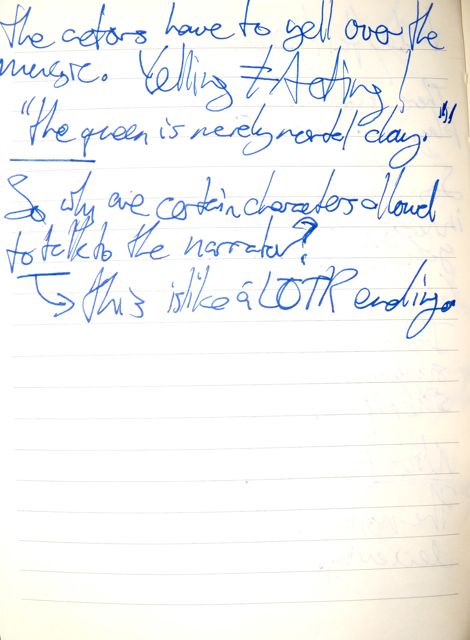 The actors have to yell over the
music. Yelling ≠ Acting!
"The queen is merely mortal clay."
So why are certain characters allowed
to talk to the narrator?
↳ This is like a LOTR ending.